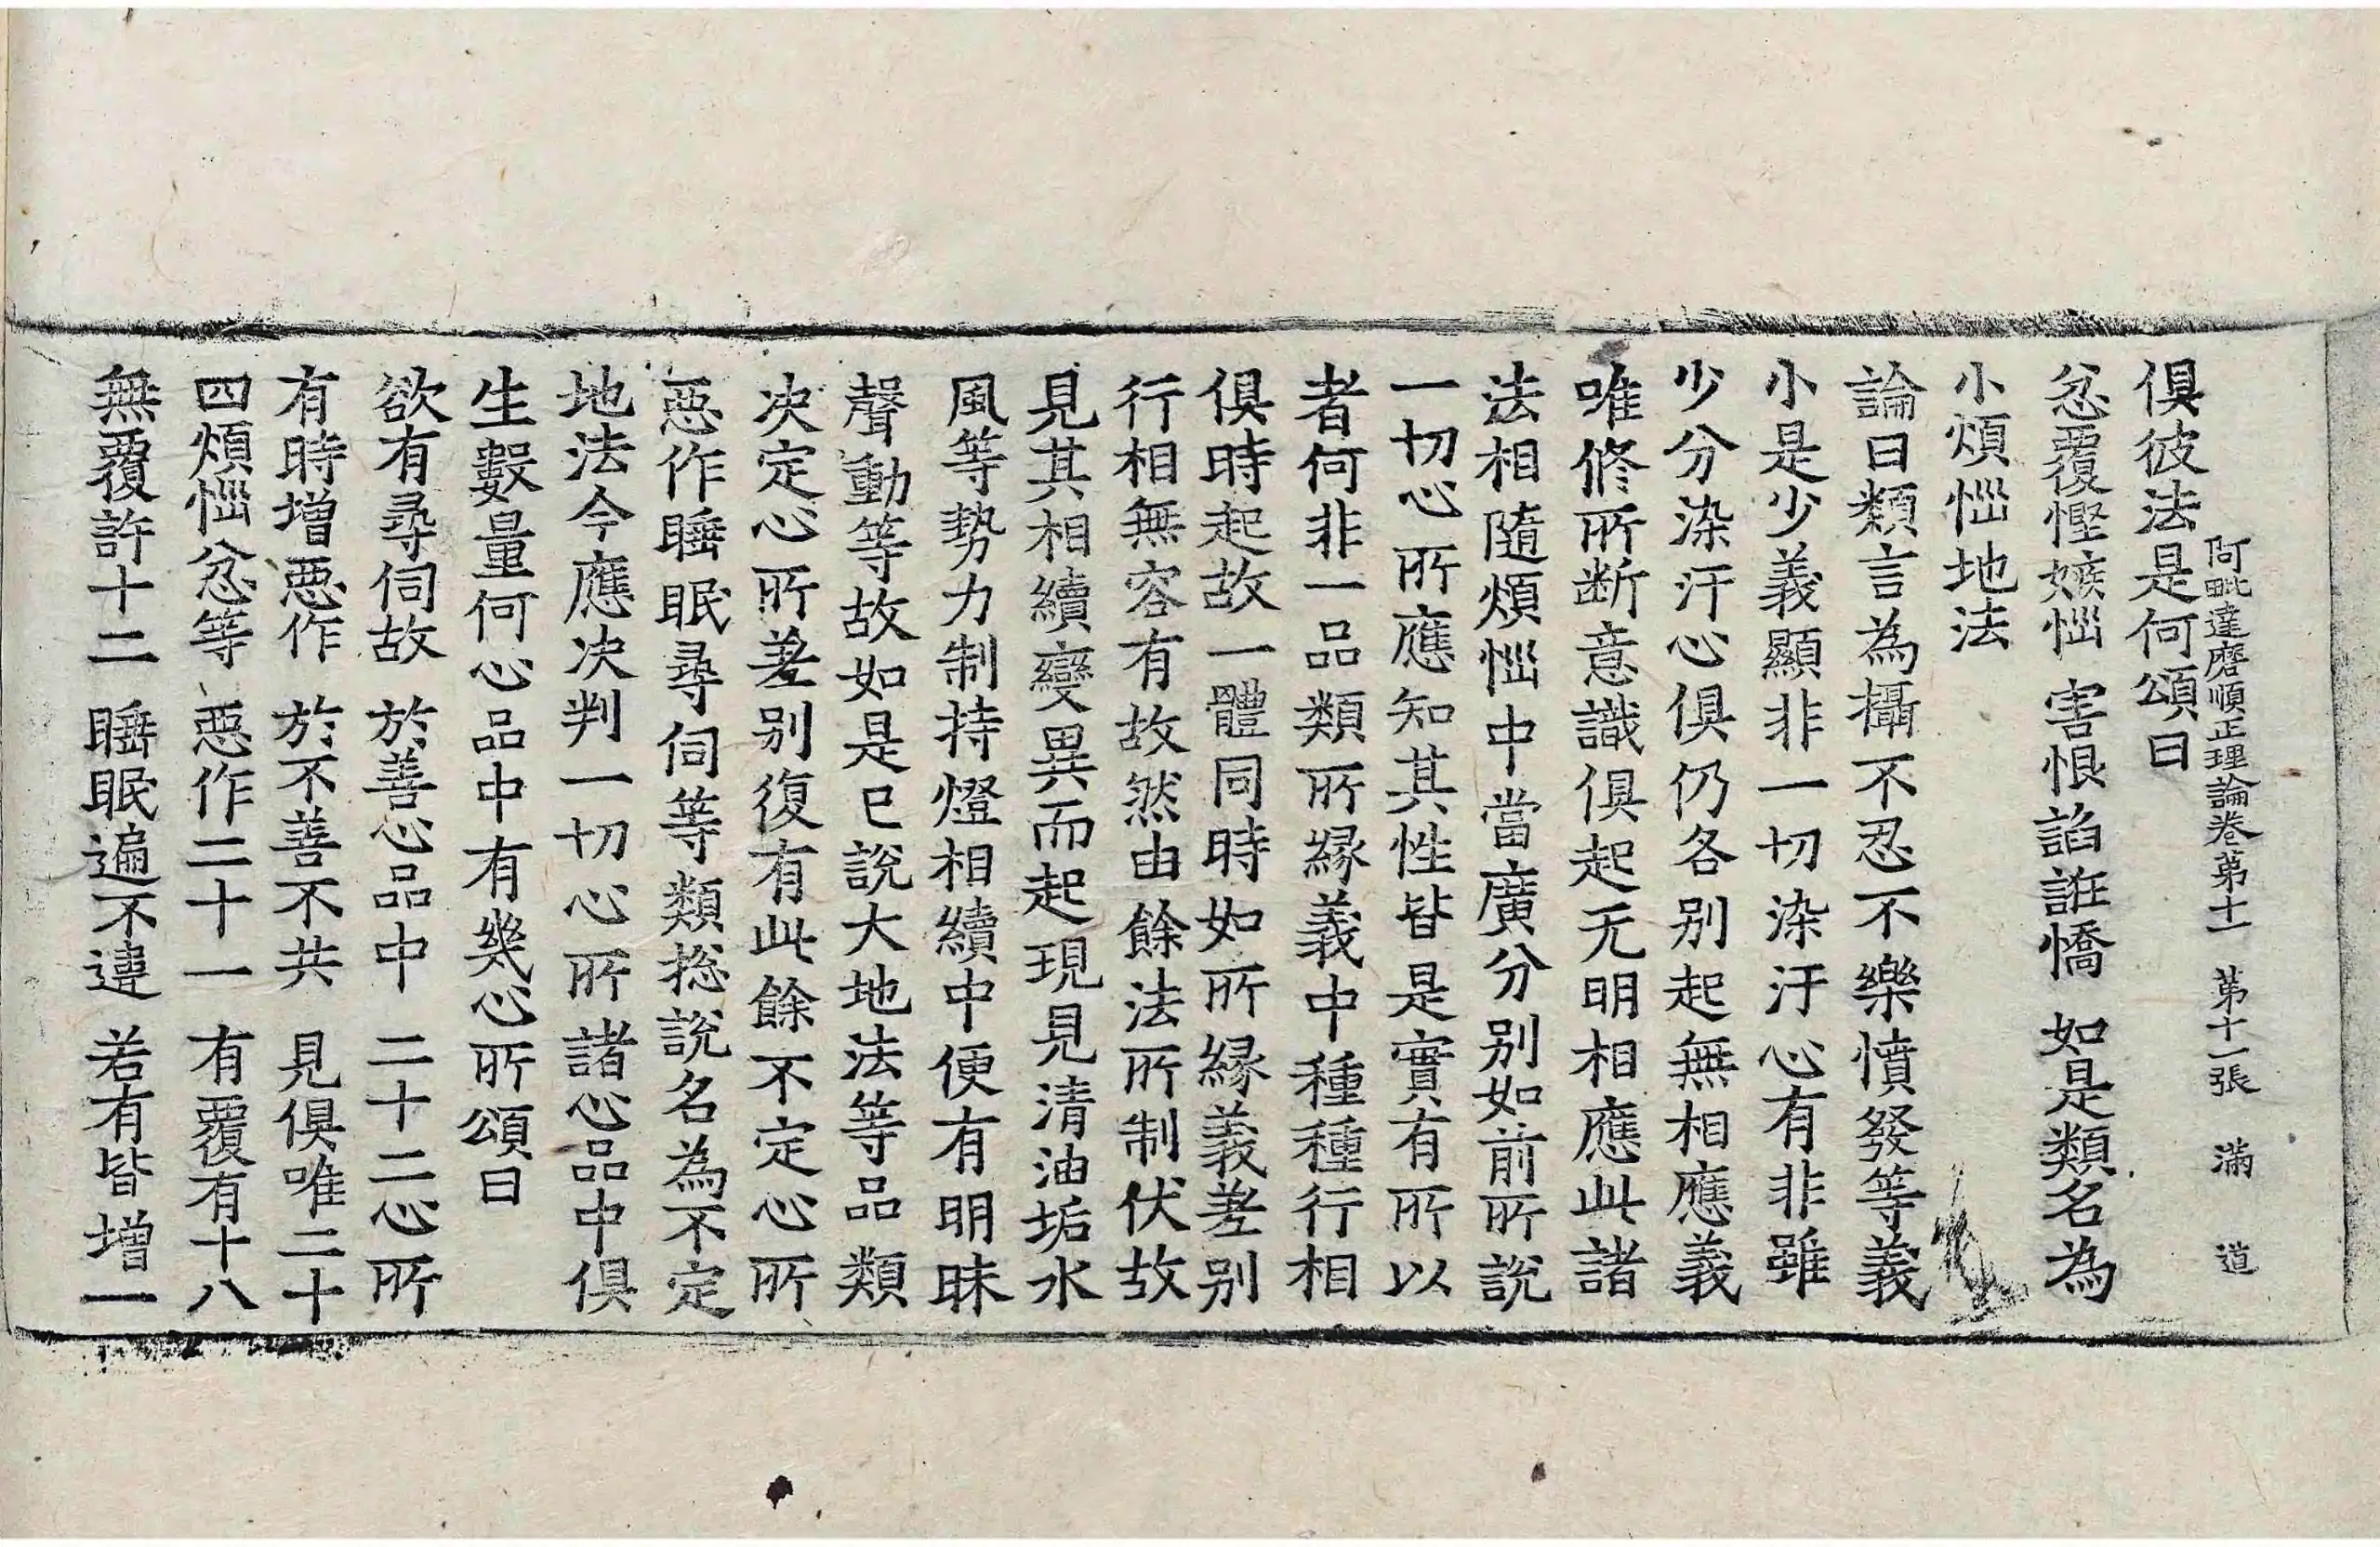 阿毗達磨順正理論卷第十一 第十一張 滿 道
俱彼法是何頌曰
忿覆慳嫉惱 害恨諂誑憍 如是類名為
小煩惱地法
論曰類言為攝不忍不樂憤發等義
小是少義顯非一切染汙心有非雖
少分染汙心俱仍各别起無相應義
唯修所断意識俱起无明相應此諸
法相隨煩惱中當廣分别如前所說
一切心所應知其性皆是實有所以
者何非一品類所緣義中種種行相
俱時起故一體同時如所緣義差别
行相無容有故然由餘法所制伏故
見其相續變異而起現見清油垢水
風等勢力制持燈相續中便有明昧
聲動等故如是已說大地法等品類
決定心所差别復有此餘不定心所
惡作睡眠尋伺等類捴說名為不定
地法今應决判一切心所諸心品中俱
生數量何心品中有幾心所頌曰
欲有尋伺故 於善心品中 二十二心所
有時增惡作 於不善不共 見俱唯二十
四煩惱忿等 惡作二十一 有覆有十八
無覆許十二 睡眠遍不違 若有皆增一